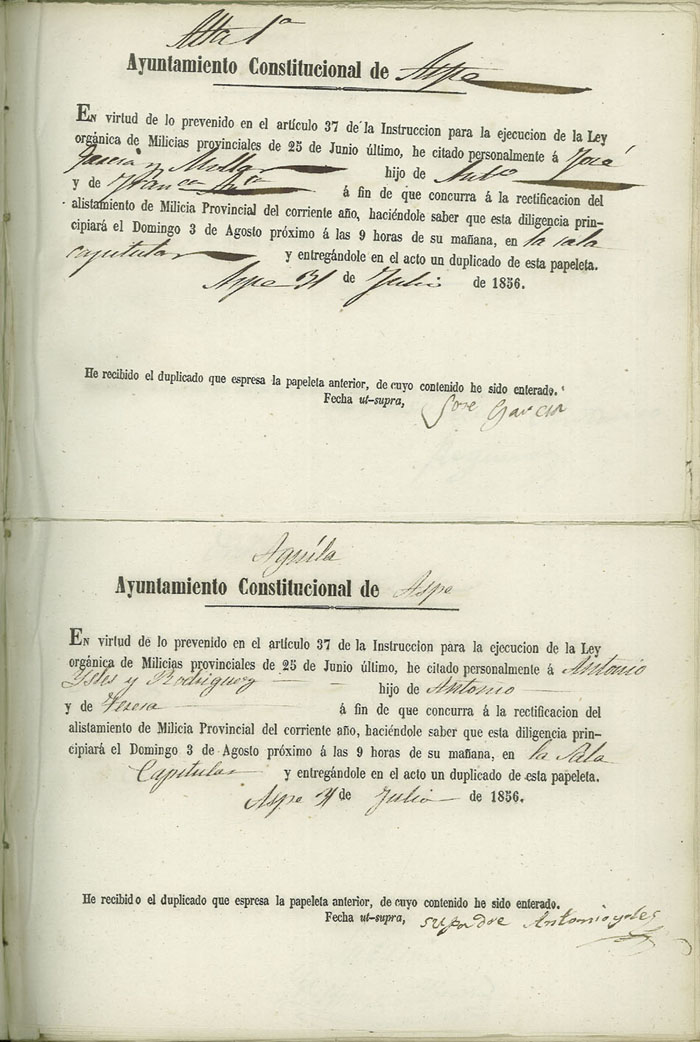 Alta 1ª
Ayuntamiento Constitucional de Aspe
En virtud de lo prevenido en el artículo 37 de la Instruccion para la ejecucion de la Ley
orgánica de Milicias provinciales de 25 de Junio último, he citado personalmente á José
Garcia y Molla hijo de Antº
y de Franca á fin de que concurra á la rectificacion del
alistamiento de Milicia Provincial del corriente año, haciéndole saber que esta diligencia prin-
cipiará el Domingo 3 de Agosto próximo á las 9 horas de su mañana, en la sala
capitular y entregándole en el acto un duplicado de esta papeleta.
Aspe 31 de Julio de 1856.
He recibido el duplicado que espresa la papeleta anterior, de cuyo contenido he sido enterado.
Fecha ut-supra, Jose Garcia
Aguíla
Ayuntamiento Constitucional de Aspe
En virtud de lo prevenido en el artículo 37 de la Instruccion para la ejecucion de la Ley
orgánica de Milicias provinciales de 25 de Junio último, he citado personalmente á Antonio
Ysles y Rodriguez hijo de Antonio
y de Teresa á fin de que concurra á la rectificacion del
alistamiento de Milicia Provincial del corriente año, haciéndole saber que esta diligencia prin-
cipiará el Domingo 3 de Agosto próximo á las 9 horas de su mañana, en la Sala
Capitular y entregándole en el acto un duplicado de esta papeleta.
Aspe 31 de Julio de 1856.
He recibido el duplicado que espresa la papeleta anterior, de cuyo contenido he sido enterado.
Fecha ut-supra, su padre Antonio ysles